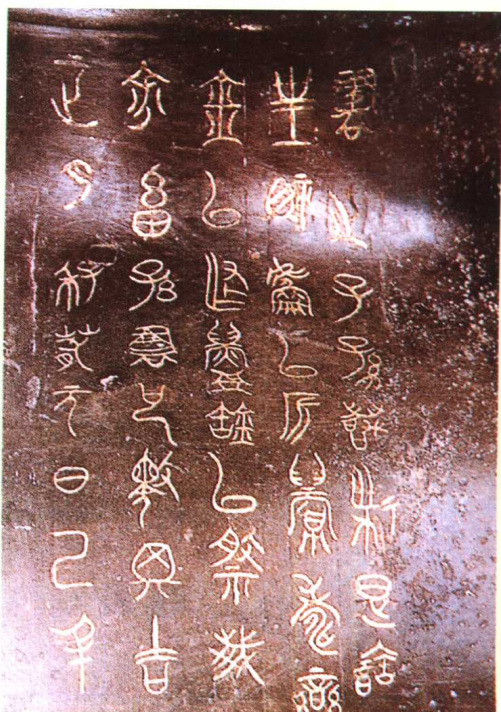 正月季春元日己丑
余畜孫書也擇其吉
金以作鑄缶以祭我
皇祖余以祈眉壽欒
書之子孫萬世是寶